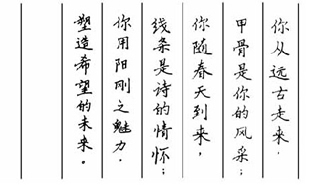 你从远古走来，
甲骨是你的风采；
你随春天到来，
线条是诗的情怀；
你用阳刚之魅力，
塑造希望的未来。